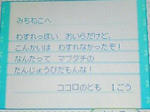 みちわこへ
わすれっぽい おいらだけど、
こんかいは わすれなかったぞ！
なんたって マブダチの
たんじょうびだもんな！
ココロのとも 1ごう